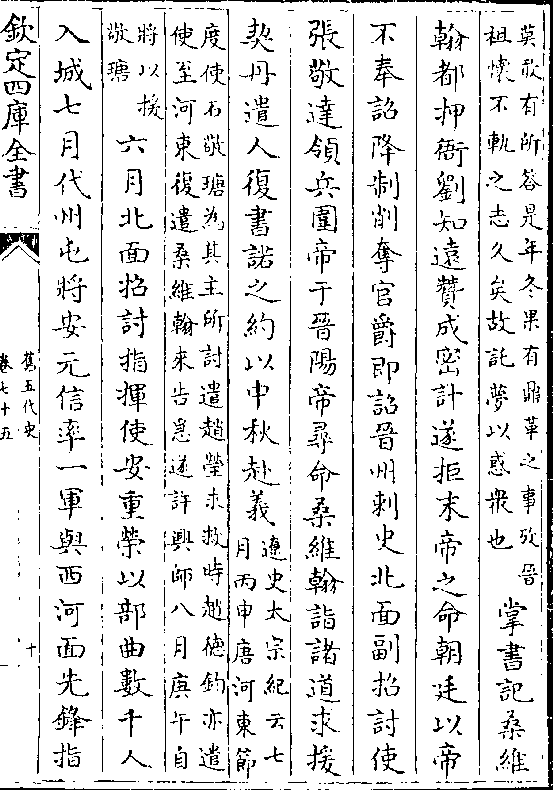 莫敢有所答是年冬果有鼎革之事攷晉
祖懷不軌之志久矣故託夢以惑衆也
掌書記桑維
翰都押衙劉知遠贊成密計遂拒末帝之命朝廷以帝
不奉詔降制削奪官爵即詔晉州刺史北面副招討使
張敬達領兵圍帝于晉陽帝尋命桑維翰詣諸道求援
契丹遣人復書諾之約以中秋赴義
遼史太宗紀云七
月丙申唐河東節
度使石敬瑭為其主所討遣趙瑩求救時趙德鈞亦遣
使至河東復遣桑維翰來告急遂許興師八月庚午自
將以援
敬瑭
六月北面招討指揮使安重榮以部曲數千人
入城七月代州屯將安元信率一軍與西河面先鋒指
欽定四庫全書
舊五代史
卷七十五
十